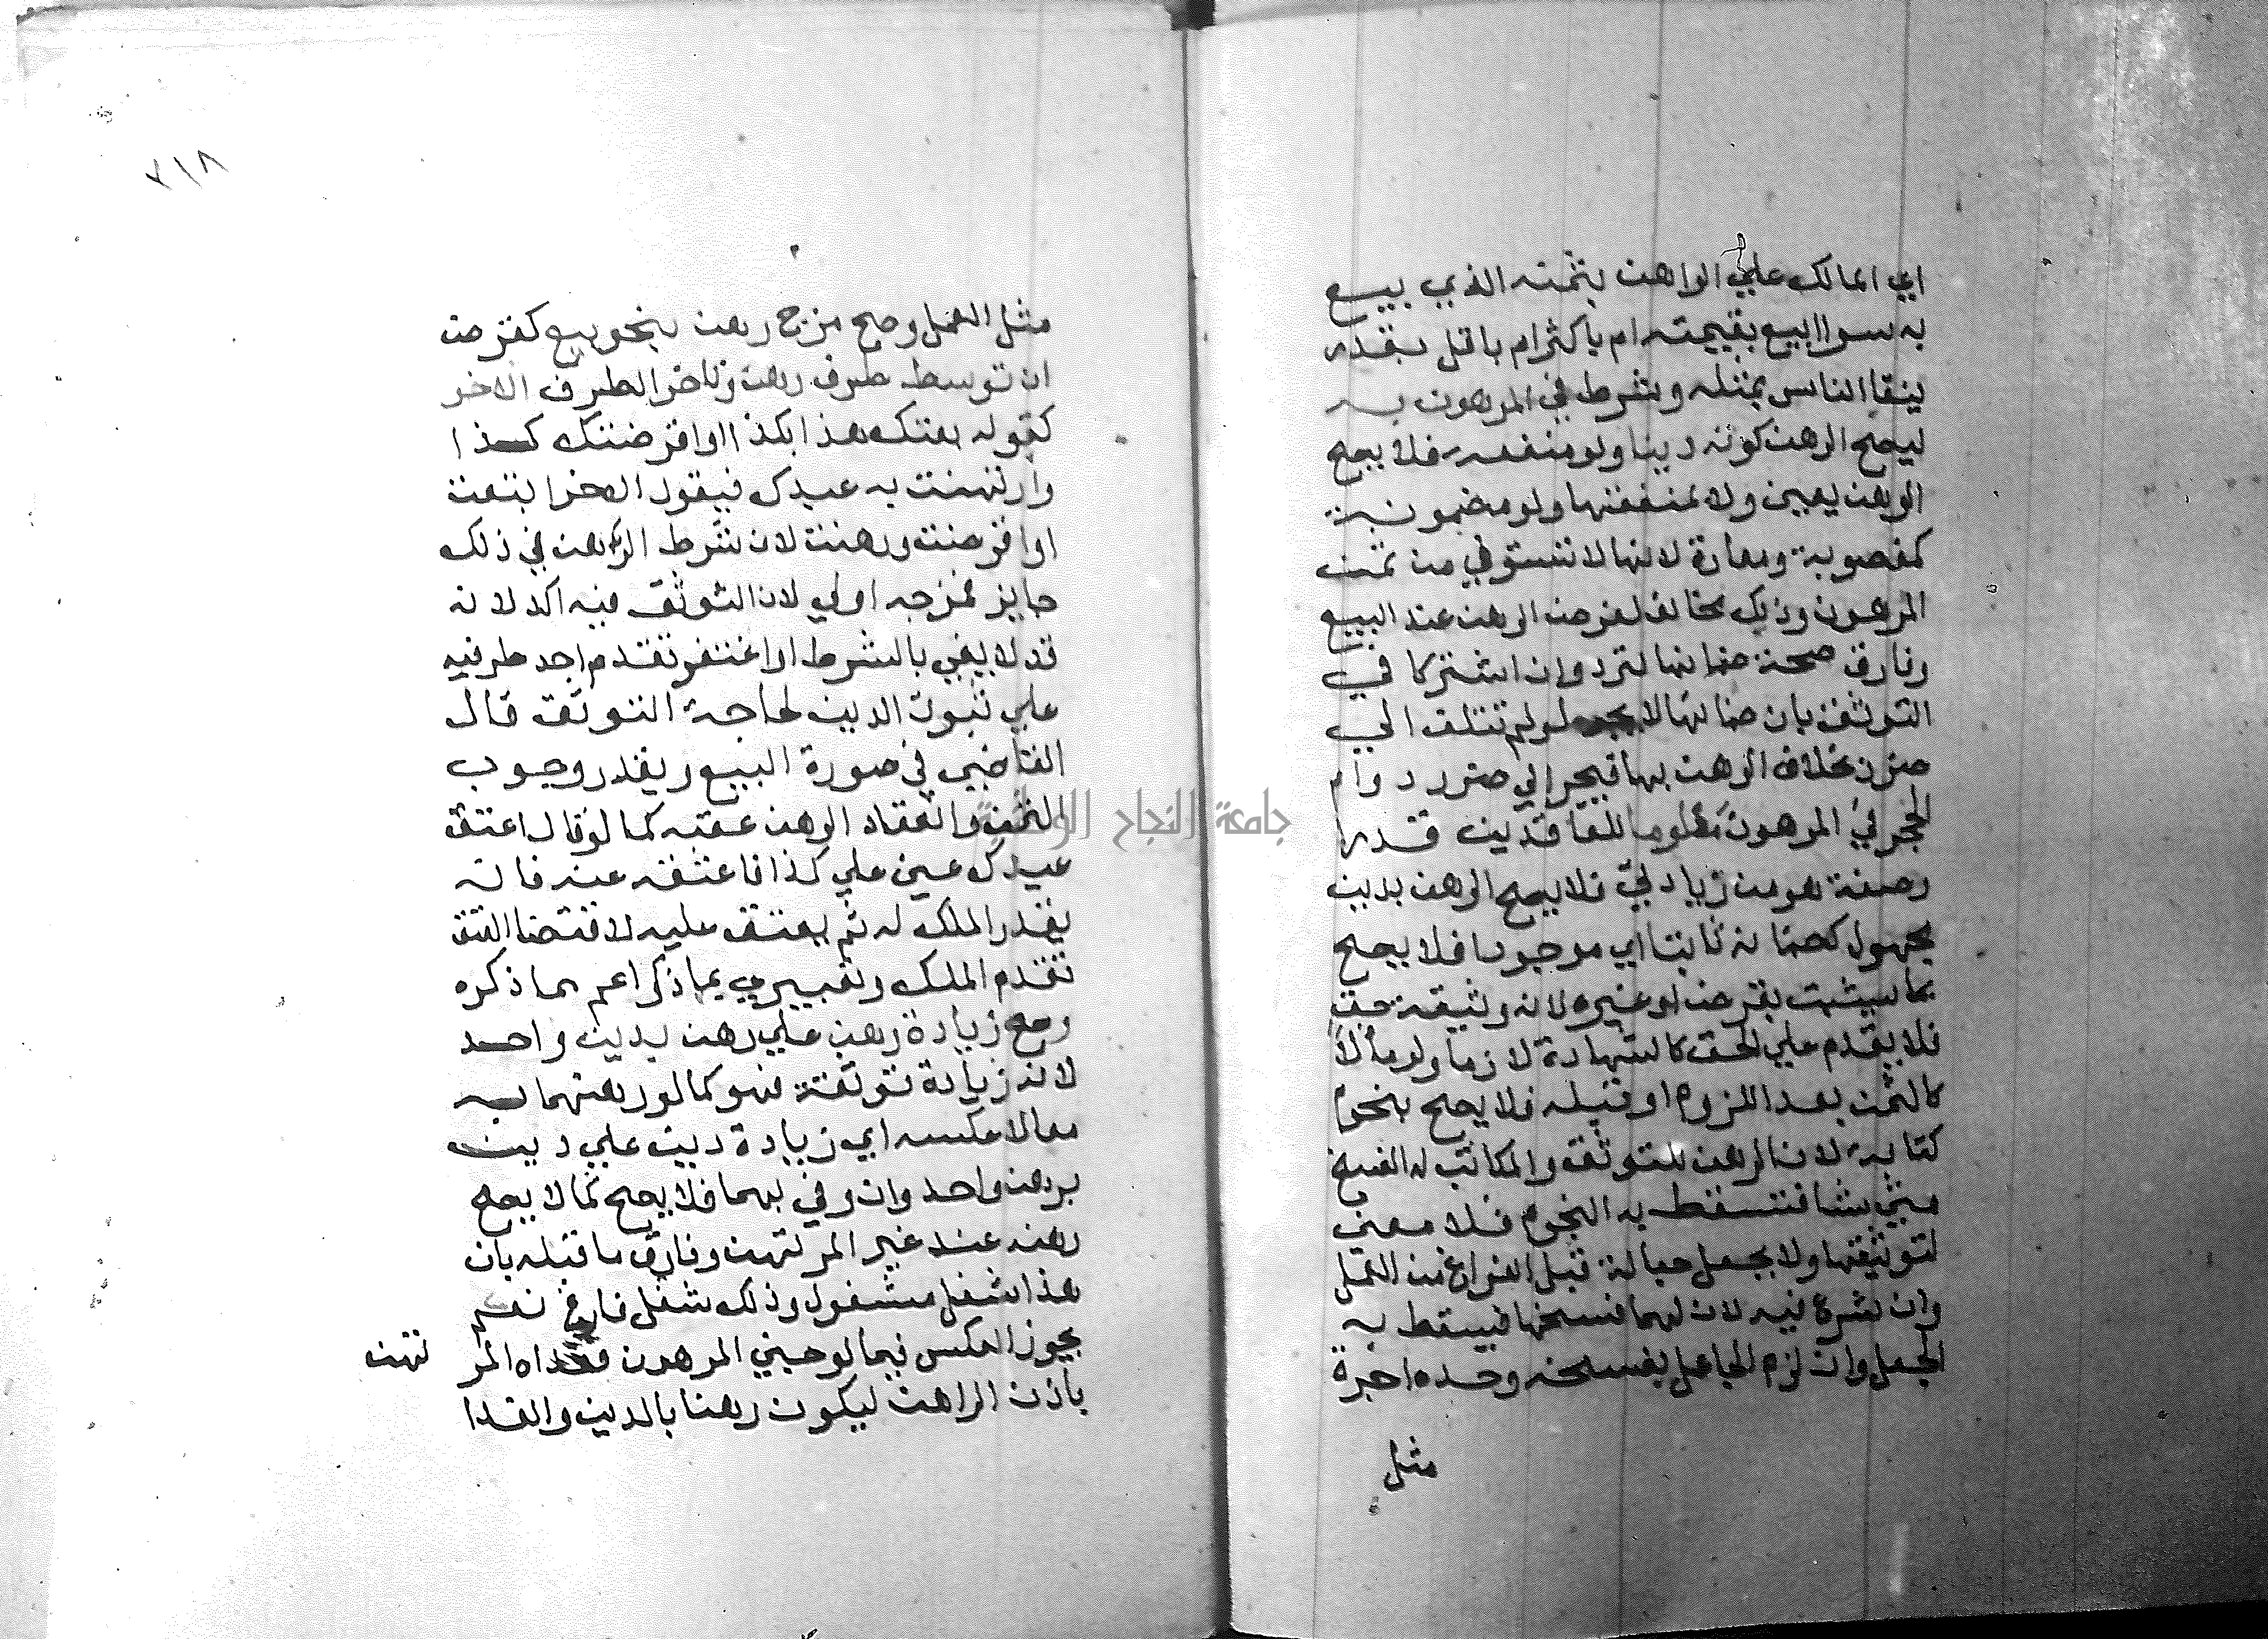 اي المالك علي الراهن بثمنه الذي بيع
به سوا ابيع بقيمته ام باكثر ام باقل بقدر
يتغابن الناس بمثله وشرط في المرهون به
ليصح الرهن كونه دينا ولو منفعة فلا يصح
الرهن بعين ولا بمنفعتها ولو مضمونة
كمغصوبة ومعارة لانها لا تستوفي من ثمن
المرهون وذلك مخالف لغرض الرهن عند البيع
وفارق صحة ضمانها لترد وان اشتركا في
التوثق بان ضمانها لا يجر لو لم تتلف الي
ضرر بخلاف الرهن بها فيجر الي ضرر دوام
الحجر في المرهون معلوما للعاقدين قدرا
وصفة هو من زيادتي فلا يصح الرهن بدين
مجهول كضمانه ثابتا اي موجودا فلا يصح
بما سيثبت بقرض او غيره لانه وثيقة حق
فلا يقدم علي الحق كالشهادة لازما ولو مآلا
كالثمن بعد اللزوم او قبله فلا يصح بنجوم
كتابة لان الرهن للتوثق والمكاتب له الفسخ
متي شا فتسقط به النجوم فلا معني
لتوثيقها ولا بجعل جعالة قبل الفراغ من العمل
وان شرع فيه لان لهما فسخها فيسقط به
الجعل وان لزم الجاعل بفسخه وحده اجرة
مثل
٢١٨
مثل العمل وصح مزج رهن بنحو بيع كقرض
ان توسط طرف رهن وتاخر الطرف الاخر
كقوله بعتك هذا بكذا او اقرضتك كذا
وارتهنت به عبدك فيقول الاخر ابتعت
او اقترضت ورهنت لان شرط الرهن في ذلك
جايز فمزجه اولي لان التوثق فيه اكد لانه
قد لا يفي بالشرط واغتفر تقدم احد طرفيه
علي ثبوت الدين لحاجة التوثق قال
القاضي في صورة البيع ويقدر وجوب
الثمن وانعقاد الرهن عقبه كما لو قال اعتق
عبدك عني علي كذا فاعتقه عنه فانه
يقدر الملك له ثم يعتق عليه لاقتضا العتق
تقدم الملك وتعبيري بما ذكر اعم مما ذكره
وصح زيادة رهن علي رهن بدين واحد
لانه زيادة توثقة فهو كما لو رهنهما به
معا لا عكسه اي زيادة دين علي دين
برهن واحد وان وفي بهما فلا يصح كما لا يصح
رهنه عند غير المرتهن وفارق ما قبله بان
هذا شغل مشغول وذلك شغل فارغ نعم
يجوز العكس فيما لو جني المرهون ففداه المر تهن
باذن الراهن ليكون رهنا بالدين والفدا
جامعة النجاح الوطنية